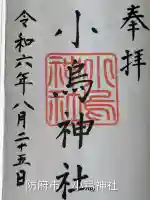 奉拝
小鳥神社
令和六年八月二十五日
防府市 小鳥神社